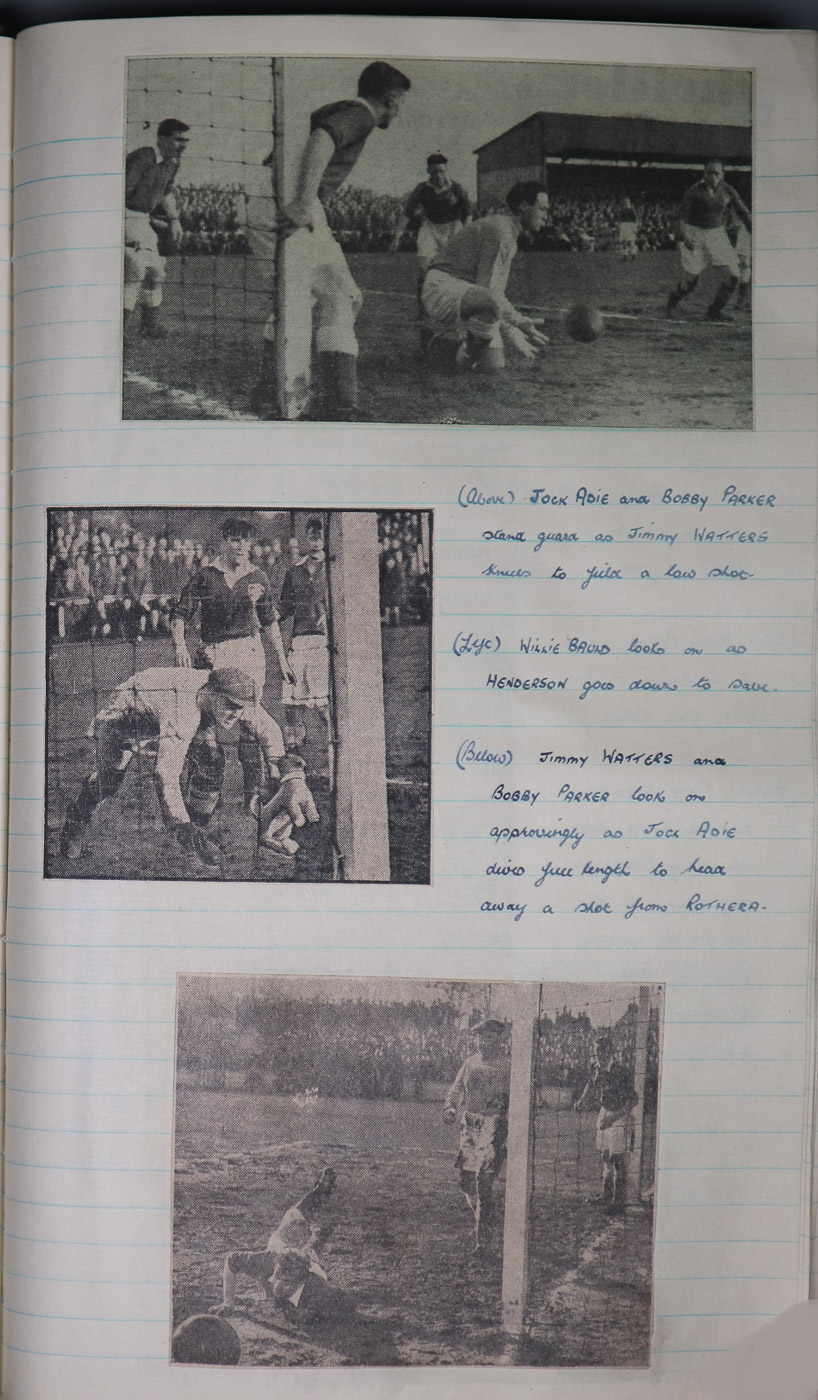 (Above) JOCK ADIE and BOBBY PARKER
stand guard as Jimmy WATTERS
kneels to field a low shot.
(Left) WILLIE BAULD looks on as
HENDERSON goes down to save.
(Below) Jimmy WATTERS and
BOBBY PARKER look on
approvingly as JOCK ADIE
dives full length to head
away a shot from ROTHERA.